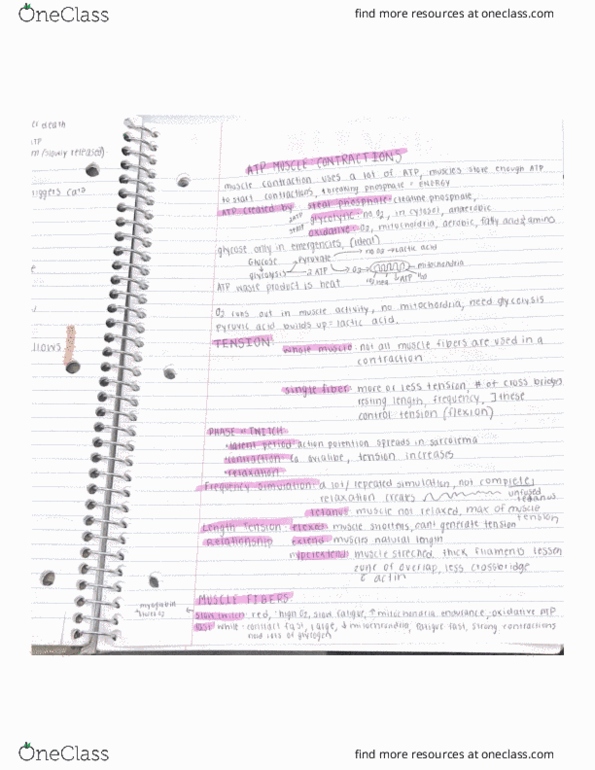 OneClass
find more resources at oneclass.com
er death
ATP
ATP MUSCLE CONTRACTIONS
muscle contraction uses a lot of ATP, muscles store enough ATP
to start contractions, breaking phosphate = ENERGY
ATP created by: steal phosphate: creatine phosphate,
glycolytic: no O2, in cytosol, anaerobic
oxidative: O2, mitochondria, aerobic, fatty acids, amino
glucose only in emergencies, (ideal)
Glucose
Pyruvate
no O2 → Lactic acid
glycolysis
2 ATP
O2
mitochondria
ATP
ATP waste product is heat
O2 runs out in muscle activity, no mitochondria, need glycolysis
Pyruvic acid builds up = lactic acid.
TENSION:
whole muscle: not all muscle fibers are used in a
contraction
single fiber: more or less tension, # of cross bridges
resting length, frequency, ] these
control tension (flexion)
PHASE = TWITCH
latent period: action potention spreads in sarcolema
contraction: Ca avialible, tension increases
relaxation
Frequency simulation: a lot/repeated simulation, not complete
relaxation creates
unfused
tetanus
tetanus: muscle not relaxed, max of muscle
tension
Length Tension
flexed: muscle shortens, cant generate tension
Relationship
extend: muscle natural length
hyperextend: muscle streched, thick filaments lessen
zone of overlap, less crossbridge
c actin
MUSCLE FIBERS
myoglobin
stores O2
slow twitch: red, high O2, slow fatigue, ↑ mitochondria endurance, oxidative
fast: white: contract fast, large, ↓ mitochondria, fatigue fast, strong contractions
lots of glycogen
OneClass
find more resources at oneclass.com